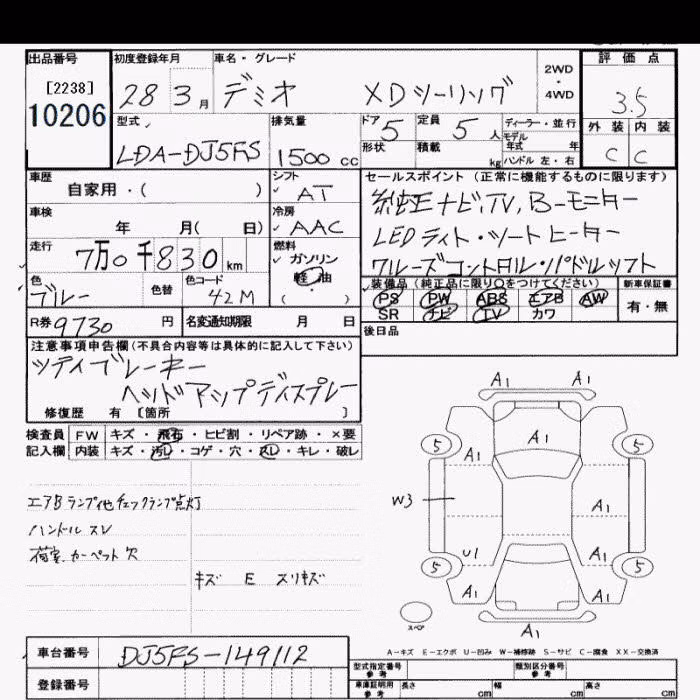 出品番号 初度登録年月 車名・グレード 2WD・4WD 評価点
[2238]
10206 28 3月 デミオ XDツーリング 3.5
型式 排気量 ドア 定員 ディーラー・並行 外装 内装
LDA-DJ5FS 1500cc 5 5人 モデル年式 年 C C
形状 積載 kg ハンドル 左・右
車歴 シフト セールスポイント(正常に機能するものに限ります)
自家用・( ) AT 純正ナビ,TV,Bーモニター
車検 冷房 LEDライト・シートヒーター
年 月( 日) AAC クルーズコントロル・パドルシフト
走行 燃料 装備品(純正品に限り○をつけてください) 新車保証書
7万0千830km ガソリン PS PW ABS エアB AW 有・無
色 色替 色コード 軽油 SR ナビ TV カワ
ブルー 42M ( )
R券 9730円 名変通知期限 月 日 後日品
注意事項申告欄(不具合内容等は具体的に記入して下さい)
シティブレーキー
ヘッドアップディスプレー
修復歴 有 [箇所 ]
検査員 FW キズ・飛石・ヒビ割・リペア跡・×要
記入欄 内装 キズ・汚レ・コゲ・穴・スレ・キレ・破レ
エアBランプ他チェックランプ点灯
ハンドルスレ
荷室.カーペット欠
キズ E スリキズ
A1 A1
A1
5 A1 5
W3 A1
U1 A1
5 A1 A1 5
スペア A1
A-キズ E-エクボ U-凹み W-補修跡 S-サビ C-腐食 XX-交換済
車台番号 DJ5FS-149112 型式指定番号 参考 類別区分番号 参考
登録番号 車庫証明用 参考 長さ cm 幅 cm 高さ cm